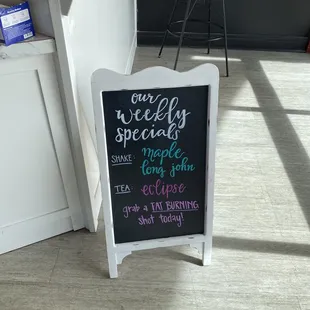 our
weekly
specials
SHAKE: maple
long john
TEA: eclipse
grab a FAT BURNING
shot today!